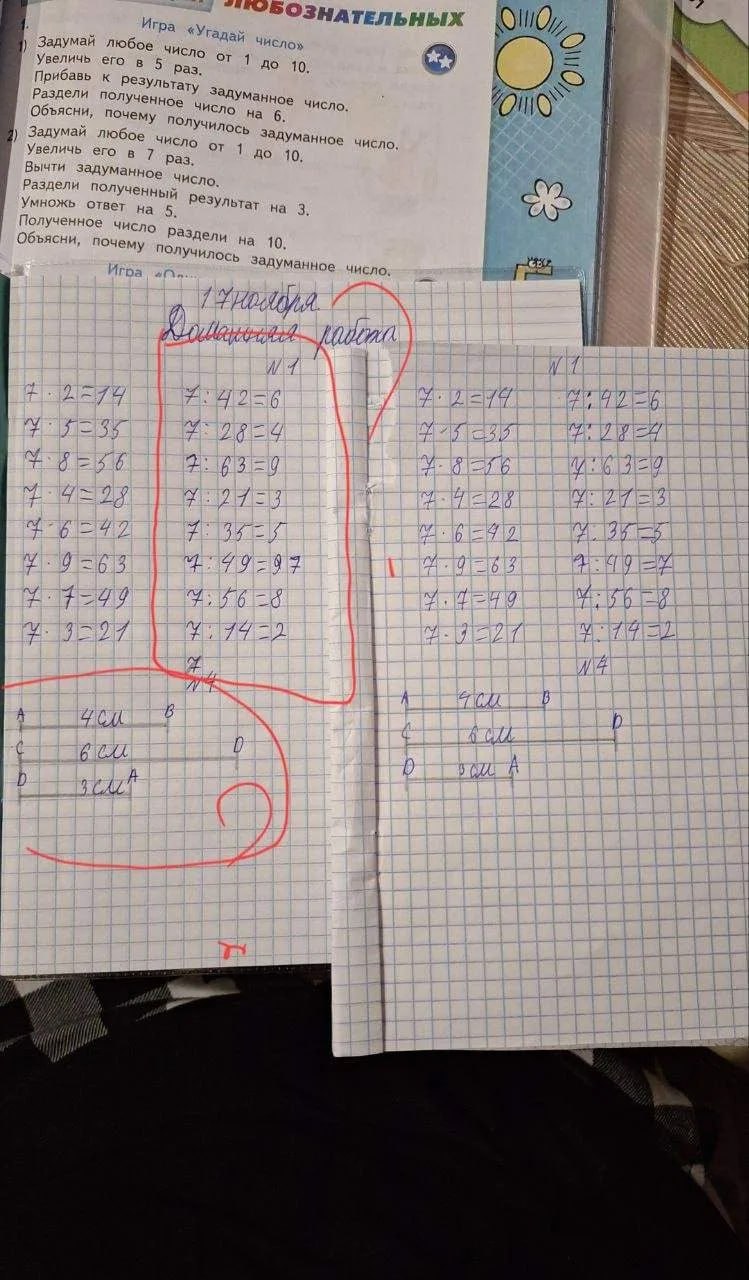 ЛЮБОЗНАТЕЛЬНЫХ
1. Игра «Угадай число»
1) Задумай любое число от 1 до 10.
Увеличь его в 5 раз.
Прибавь к результату задуманное число.
Раздели полученное число на 6.
Объясни, почему получилось задуманное число.
2) Задумай любое число от 1 до 10.
Увеличь его в 7 раз.
Вычти задуманное число.
Раздели полученный результат на 3.
Умножь ответ на 5.
Полученное число раздели на 10.
Объясни, почему получилось задуманное число.
Игра
17 ноября
Домашняя работа
N 1
7 · 2 = 14 7 : 42 = 6
7 · 5 = 35 7 : 28 = 4
7 · 8 = 56 7 : 63 = 9
7 · 4 = 28 7 : 21 = 3
7 · 6 = 42 7 : 35 = 5
7 · 9 = 63 7 : 49 = 97
7 · 7 = 49 7 : 56 = 8
7 · 3 = 21 7 : 14 = 2
7
N 4
A 4 см B
C 6 см D
D 3 см A
2
N 1
7 · 2 = 14 7 : 42 = 6
7 · 5 = 35 7 : 28 = 4
7 · 8 = 56 7 : 63 = 9
7 · 4 = 28 7 : 21 = 3
7 · 6 = 42 7 : 35 = 5
7 · 9 = 63 7 : 49 = 7
7 · 7 = 49 7 : 56 = 8
7 · 3 = 21 7 : 14 = 2
N 4
A 4 см B
C 6 см D
D 3 см A